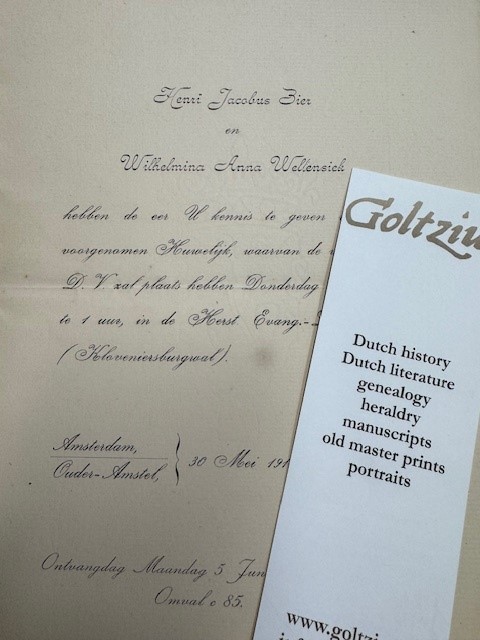 Henri Jacobus Bier
en
Wilhelmina Anna Wellensiek
hebben de eer U kennis te geven
voorgenomen Huwelijk, waarvan de
D. V. zal plaats hebben Donderdag
te 1 uur, in de Herst. Evang.-
(Kloveniersburgwal).
Amsterdam,
Ouder-Amstel,
30 Mei 191
Ontvangdag Maandag 5 Jun
Omval c 85.
Goltziu
Dutch history
Dutch literature
genealogy
heraldry
manuscripts
old master prints
portraits
www.goltzi